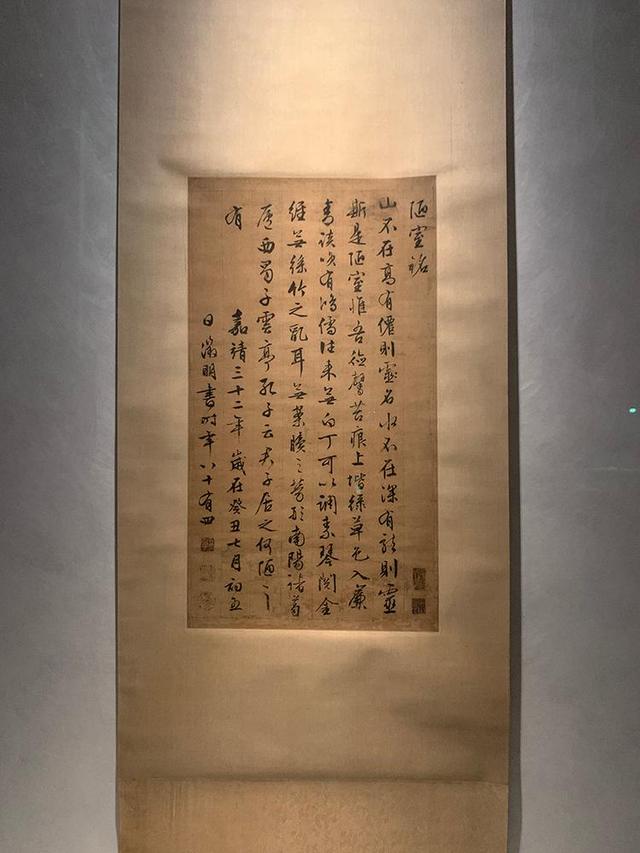 陋室銘
山不在高有僊則靈名水不在深有龍則靈
斯是陋室惟吾德馨苔痕上堦綠草色入簾
青談笑有鴻儒往來無白丁可以調素琴閱金
經無絲竹之亂耳無案牘之勞形南陽諸葛
廬西蜀子雲亭孔子云夫子居之何陋之
有 嘉靖三十二年歲在癸丑七月初五
日徵明書時年八十有四